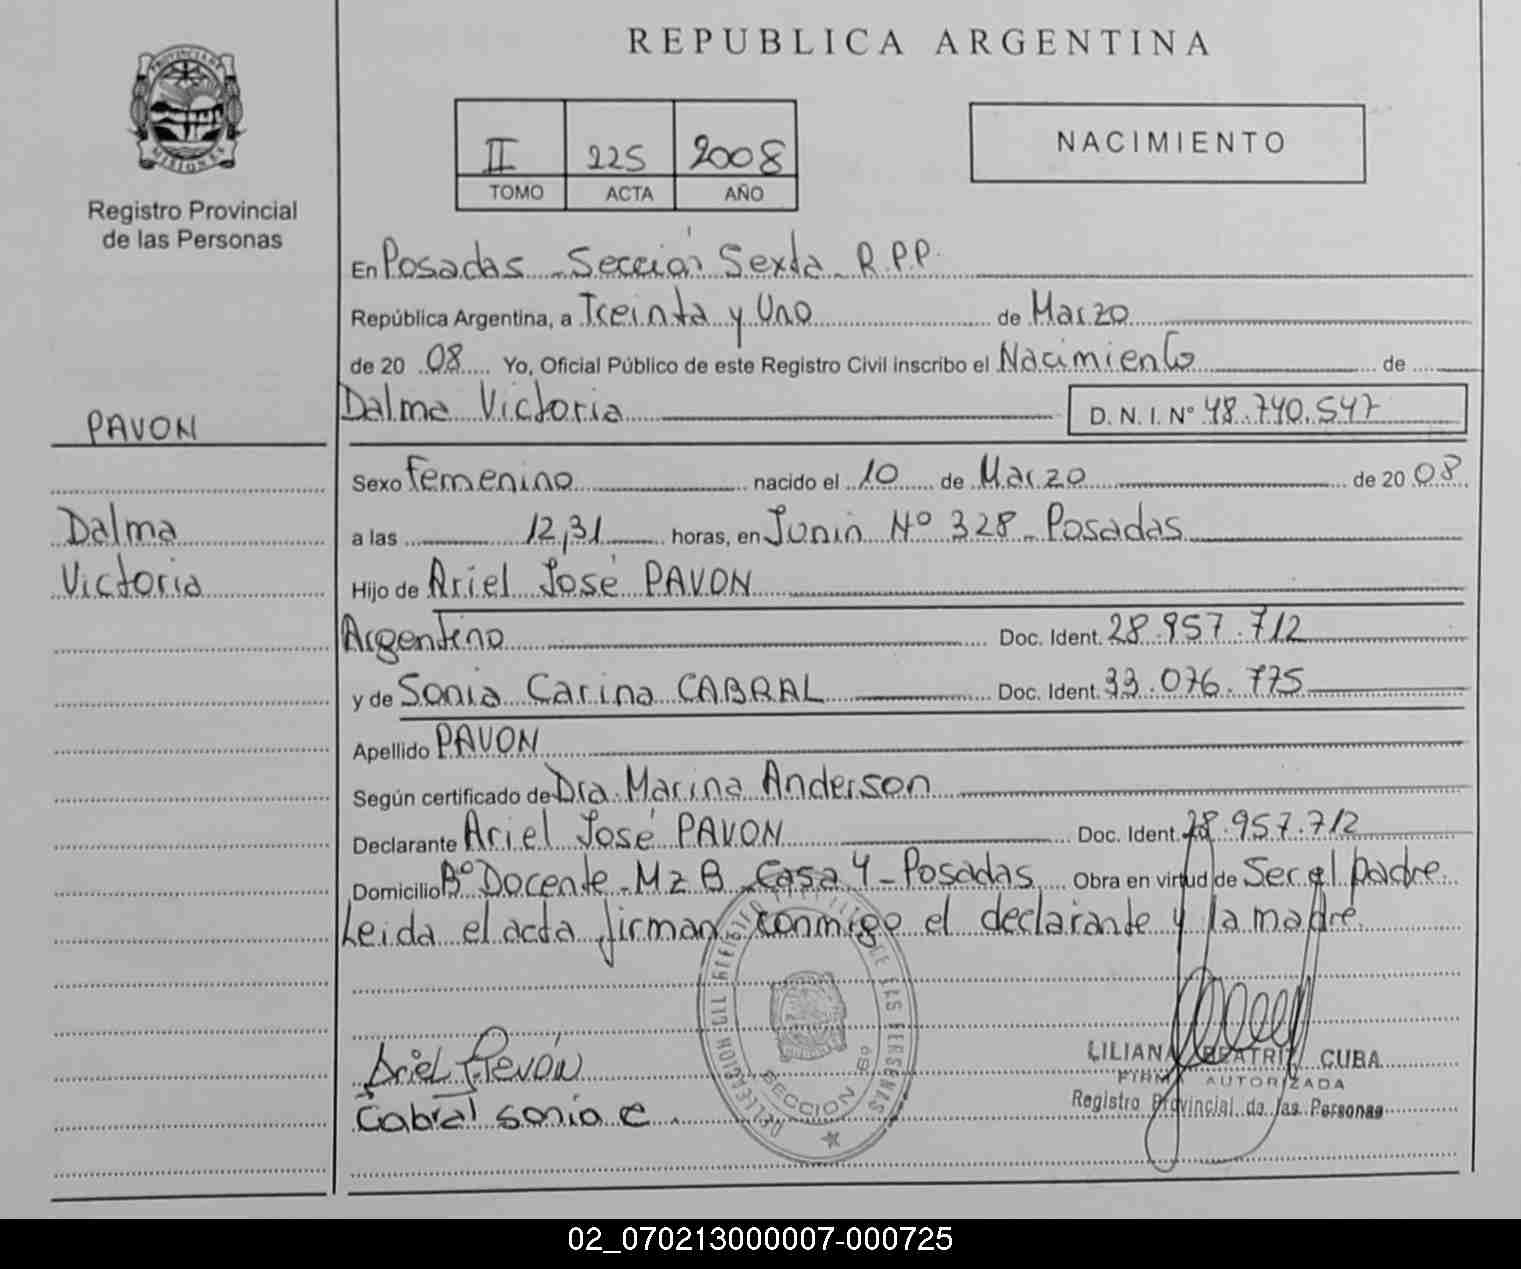 REPUBLICA ARGENTINA
PROVINCIA DE MISIONES
Registro Provincial
de las Personas
II 225 2008
TOMO ACTA AÑO
NACIMIENTO
En Posadas - Sección Sexta - R.P.P.
República Argentina, a Treinta y Uno de Marzo
de 20 08 Yo, Oficial Público de este Registro Civil inscribo el Nacimiento de
Dalma Victoria D. N. I. Nº 48.740.547
PAVON
Dalma
Victoria
Sexo Femenino nacido el 10 de Marzo de 20 08
a las 12,31 horas, en Junin Nº 328 - Posadas
Hijo de Ariel José PAVON
Argentino Doc. Ident. 28.957.712
y de Sonia Carina CABRAL Doc. Ident. 33.076.775
Apellido PAVON
Según certificado de Dra. Marina Anderson
Declarante Ariel José PAVON Doc. Ident. 28.957.712
Domicilio Bº Docente - Mz B - Casa 4 - Posadas Obra en virtud de Ser el padre.
Leida el acta firman conmigo el declarante y la madre.
Ariel Pavón
Cabral Sonia C
SECCION 6º
LILIANA BEATRIZ CUBA
FIRMA AUTORIZADA
Registro Provincial de las Personas
02_070213000007-000725